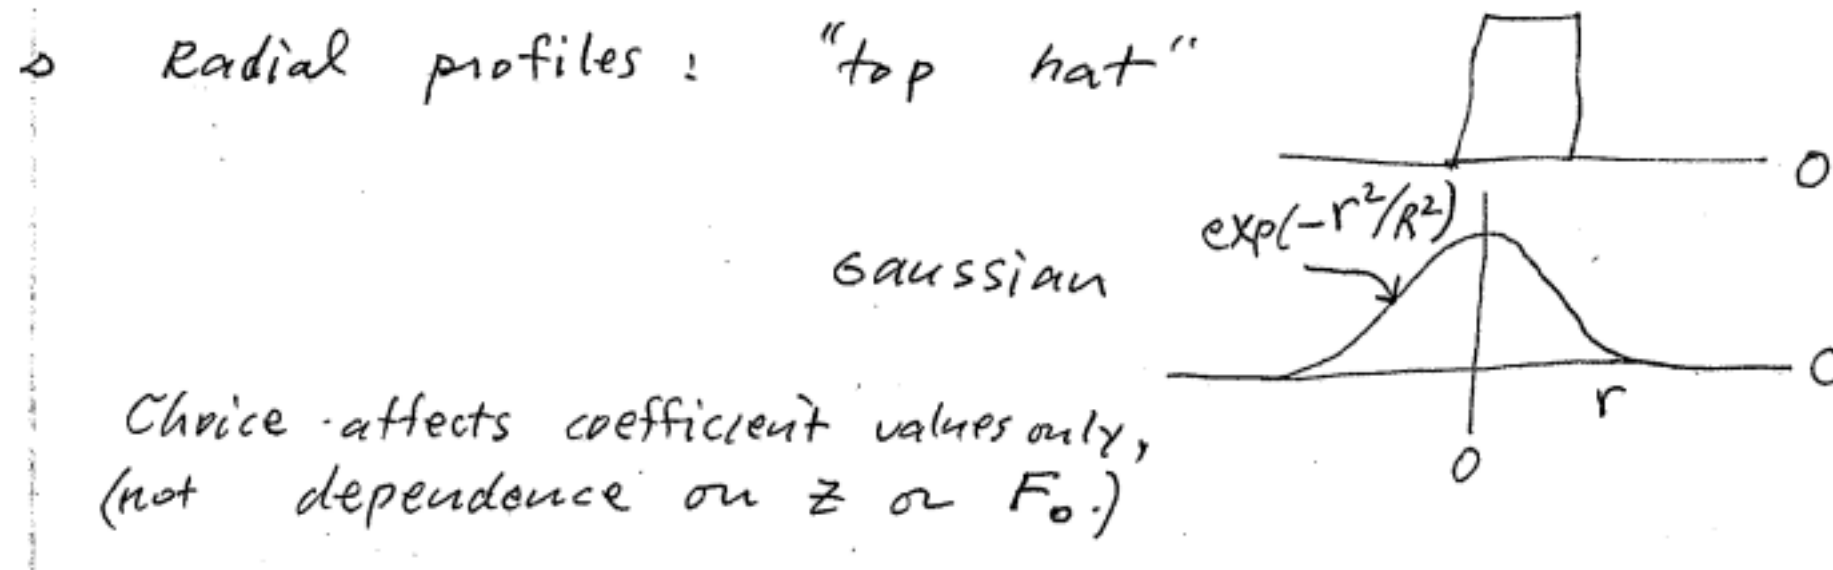 Radial profiles : "top hat"
0
exp(-r²/R²)
Gaussian
0
r
0
Choice affects coefficient values only,
(not dependence on z or F₀.)